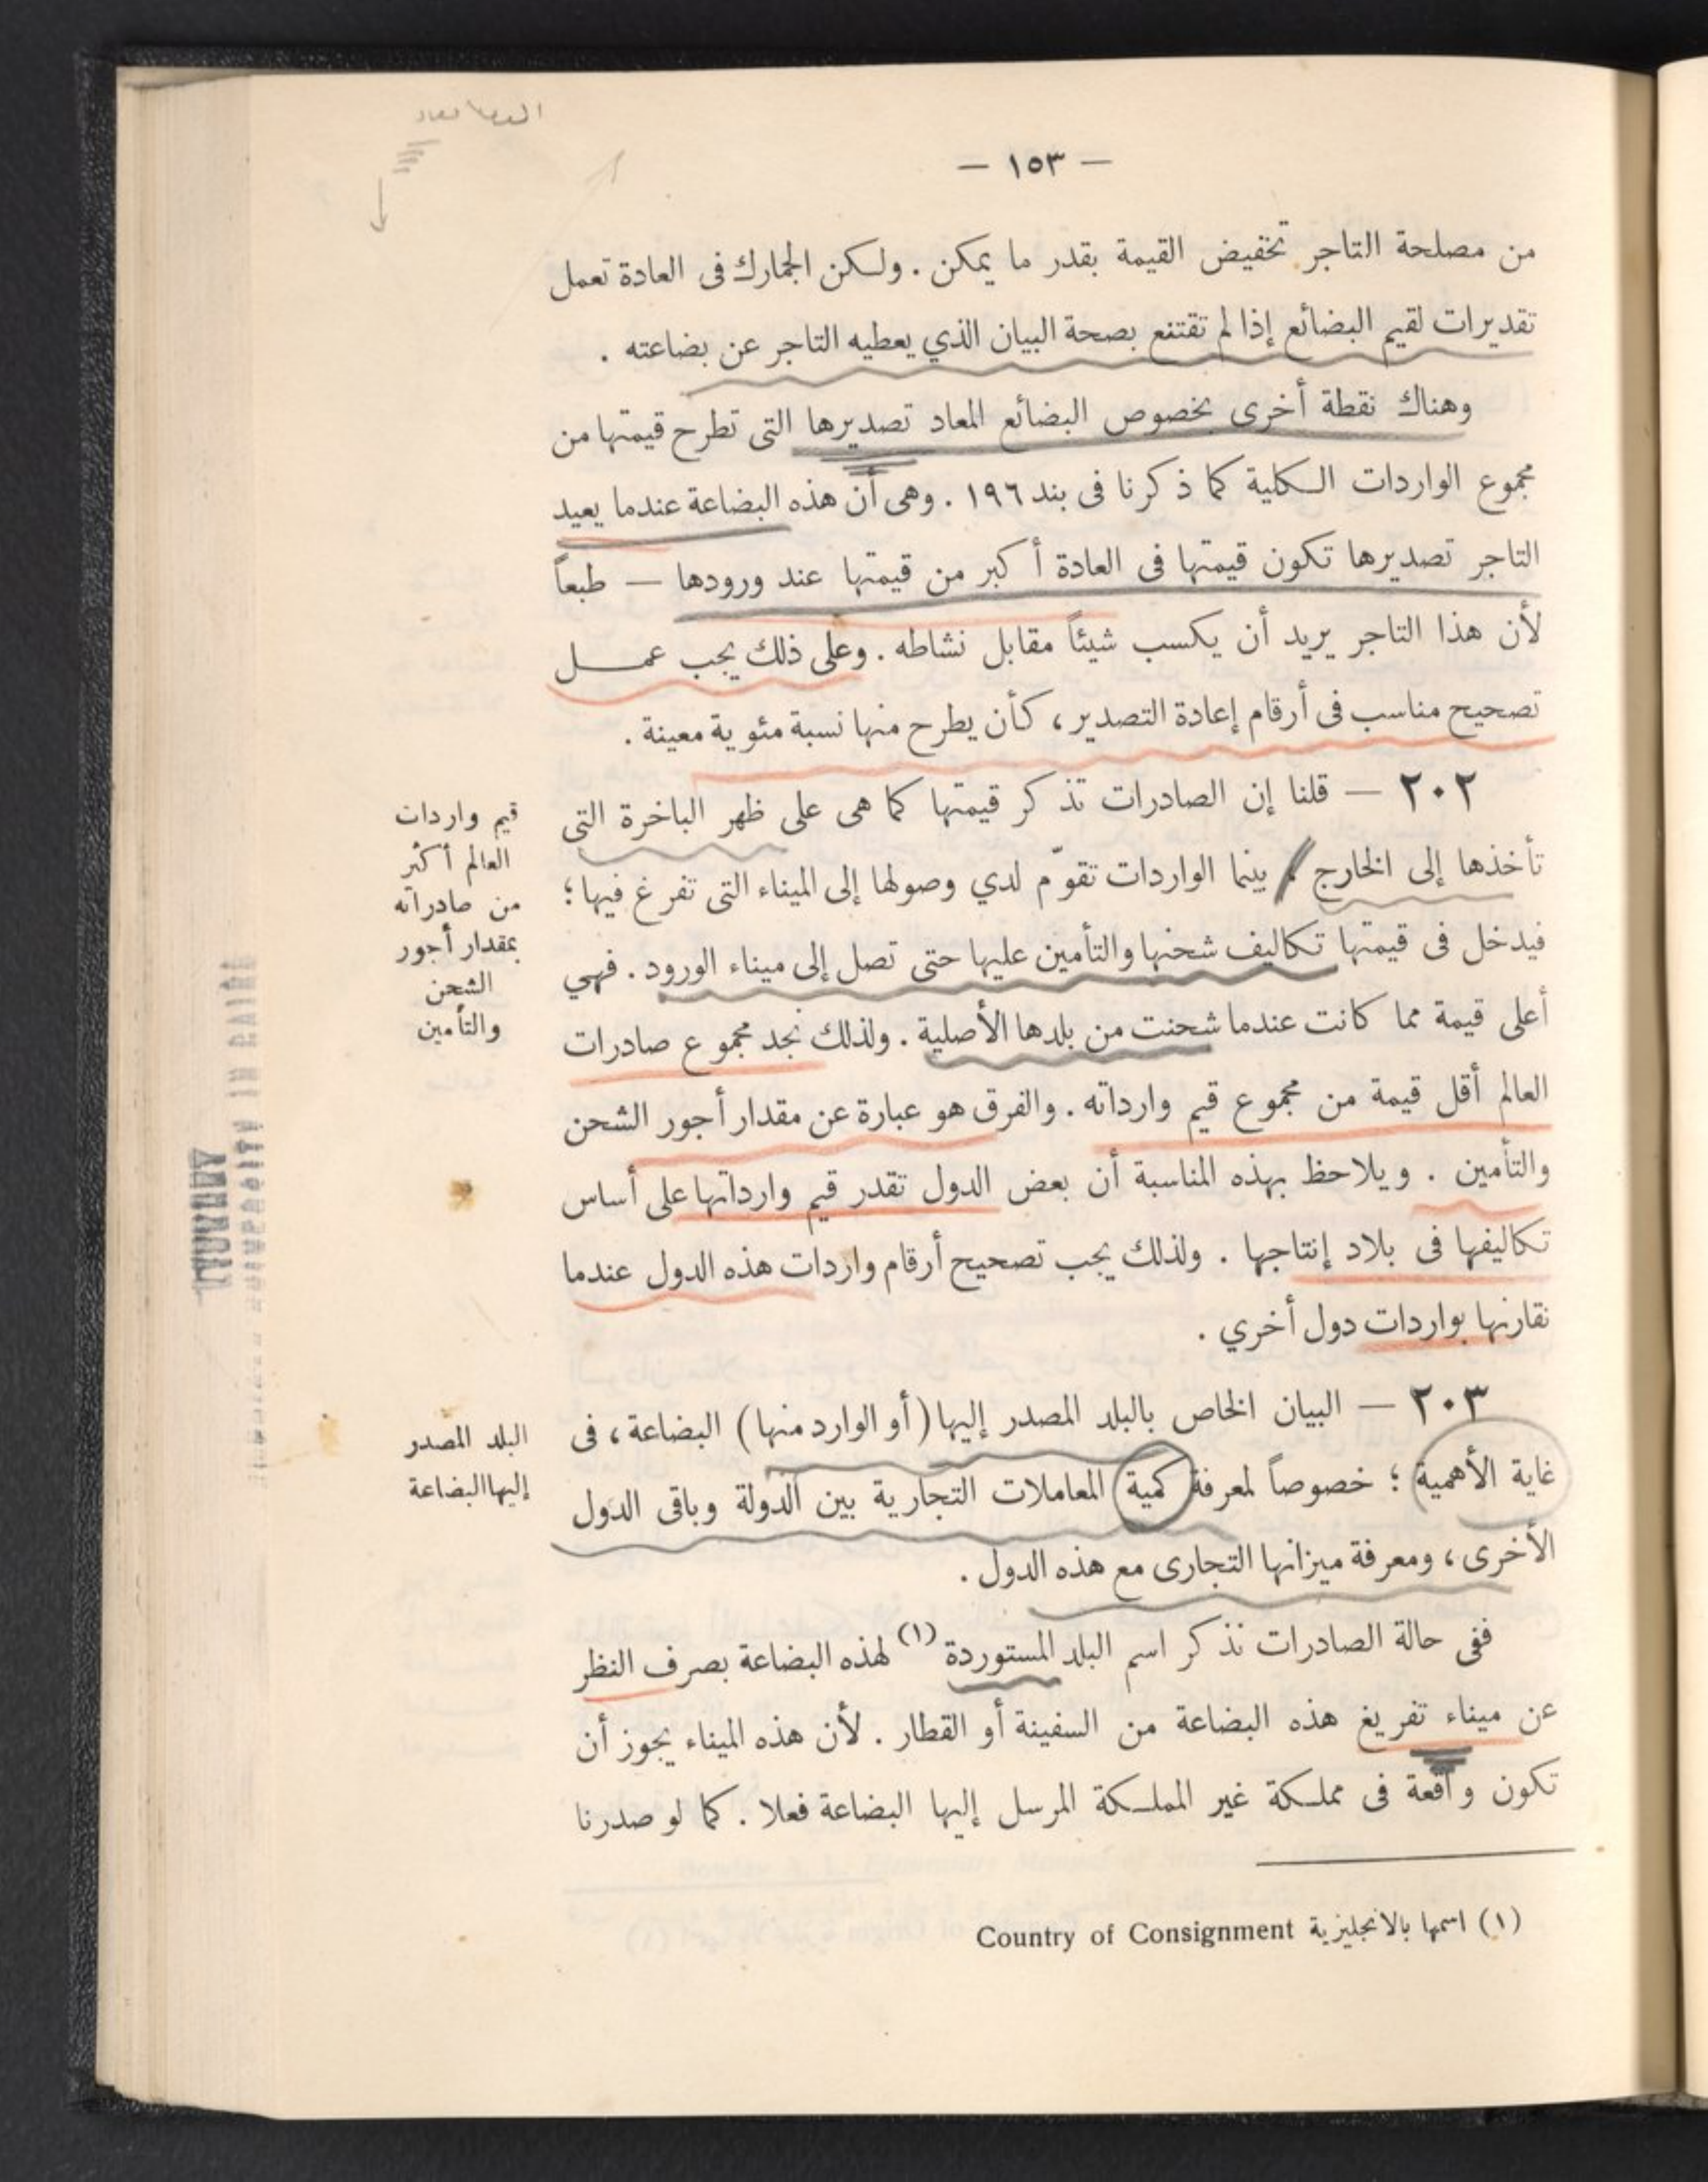 — ١٥٣ —
من مصلحة التاجر تخفيض القيمة بقدر ما يمكن . ولكن الجمارك فى العادة تعمل
تقديرات لقيم البضائع إذا لم تقتنع بصحة البيان الذي يعطيه التاجر عن بضاعته .
وهناك نقطة أخرى بخصوص البضائع المعاد تصديرها التى تطرح قيمتها من
مجموع الواردات الكلية كما ذكرنا فى بند ١٩٦ . وهى أن هذه البضاعة عندما يعيد
التاجر تصديرها تكون قيمتها فى العادة أكبر من قيمتها عند ورودها — طبعاً
لأن هذا التاجر يريد أن يكسب شيئاً مقابل نشاطه . وعلى ذلك يجب عمل
تصحيح مناسب فى أرقام إعادة التصدير ، كأن يطرح منها نسبة مئوية معينة .
٢٠٢ — قلنا إن الصادرات تذكر قيمتها كما هى على ظهر الباخرة التى
تأخذها إلى الخارج ؛ بينما الواردات تقوّم لدي وصولها إلى الميناء التى تفرغ فيها ؛
فيدخل فى قيمتها تكاليف شحنها والتأمين عليها حتى تصل إلى ميناء الورود . فهي
أعلى قيمة مما كانت عندما شحنت من بلدها الأصلية . ولذلك نجد مجموع صادرات
العالم أقل قيمة من مجموع قيم وارداته . والفرق هو عبارة عن مقدار أجور الشحن
والتأمين . ويلاحظ بهذه المناسبة أن بعض الدول تقدر قيم وارداتها على أساس
تكاليفها فى بلاد إنتاجها . ولذلك يجب تصحيح أرقام واردات هذه الدول عندما
نقارنها بواردات دول أخري .
قيم واردات
العالم أكثر
من صادراته
بمقدار أجور
الشحن
والتأمين
٢٠٣ — البيان الخاص بالبلد المصدر إليها (أو الوارد منها) البضاعة ، فى
غاية الأهمية ؛ خصوصاً لمعرفة كمية المعاملات التجارية بين الدولة وباقى الدول
الأخرى ، ومعرفة ميزانها التجارى مع هذه الدول .
البلد المصدر
إليها البضاعة
ففى حالة الصادرات نذكر اسم البلد المستوردة (١) لهذه البضاعة بصرف النظر
عن ميناء تفريغ هذه البضاعة من السفينة أو القطار . لأن هذه الميناء يجوز أن
تكون واقعة فى مملكة غير المملكة المرسل إليها البضاعة فعلا . كما لو صدرنا
(١) اسمها بالانجليزية Country of Consignment